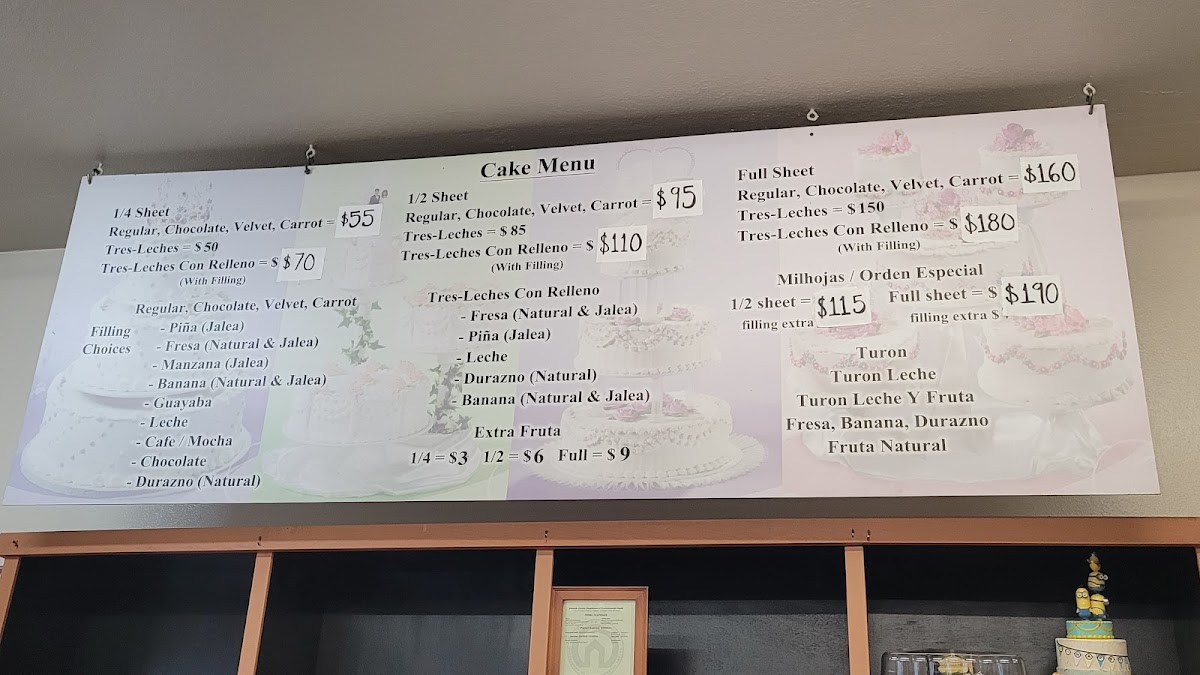 Cake Menu
1/4 Sheet
Regular, Chocolate, Velvet, Carrot = $55
Tres-Leches = $50
Tres-Leches Con Relleno = $ $70
(With Filling)
Regular, Chocolate, Velvet, Carrot
Filling Choices
- Piña (Jalea)
- Fresa (Natural & Jalea)
- Manzana (Jalea)
- Banana (Natural & Jalea)
- Guayaba
- Leche
- Cafe / Mocha
- Chocolate
- Durazno (Natural)
1/2 Sheet
Regular, Chocolate, Velvet, Carrot = $95
Tres-Leches = $85
Tres-Leches Con Relleno = $ $110
(With Filling)
Tres-Leches Con Relleno
- Fresa (Natural & Jalea)
- Piña (Jalea)
- Leche
- Durazno (Natural)
- Banana (Natural & Jalea)
Extra Fruta
1/4 = $3 1/2 = $6 Full = $9
Full Sheet
Regular, Chocolate, Velvet, Carrot = $160
Tres-Leches = $150
Tres-Leches Con Relleno = $ $180
(With Filling)
Milhojas / Orden Especial
1/2 sheet = $115 Full sheet = $ $190
filling extra filling extra $
Turon
Turon Leche
Turon Leche Y Fruta
Fresa, Banana, Durazno
Fruta Natural